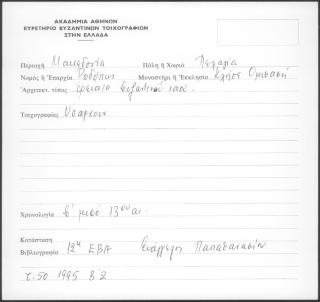 ΑΚΑΔΗΜΙΑ ΑΘΗΝΩΝ
ΕΥΡΕΤΗΡΙΟ ΒΥΖΑΝΤΙΝΩΝ ΤΟΙΧΟΓΡΑΦΙΩΝ
ΣΤΗΝ ΕΛΛΑΔΑ
Περιοχή Μακεδονία Πόλη ή Χωριό
Νομός ή Ἐπαρχία Ροδόπης Μοναστήρι ή Ἐκκλησία
Ἀρχιτεκτ. τύπος ἐρείπιο βυζαντινού ναού.
Τοιχογραφίες Υπάρχουν
Χρονολογία β' μισό 13ου αι.
Κατάσταση
Βιβλιογραφία 12η ΕΒΑ
τ. 50 1995 Β2